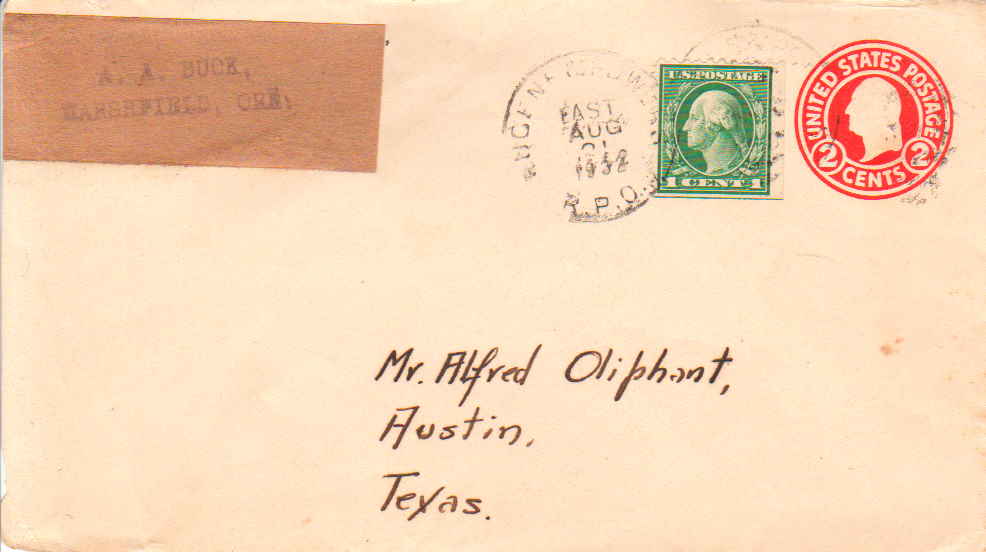 A. A. BUCK,
MARSHFIELD, ORE,
EUGENE
EAST
AUG
21
1932
R.P.O.
U.S. POSTAGE
1 CENT 1
UNITED STATES POSTAGE
2 CENTS 2
Mr. Alfred Oliphant,
Austin,
Texas.